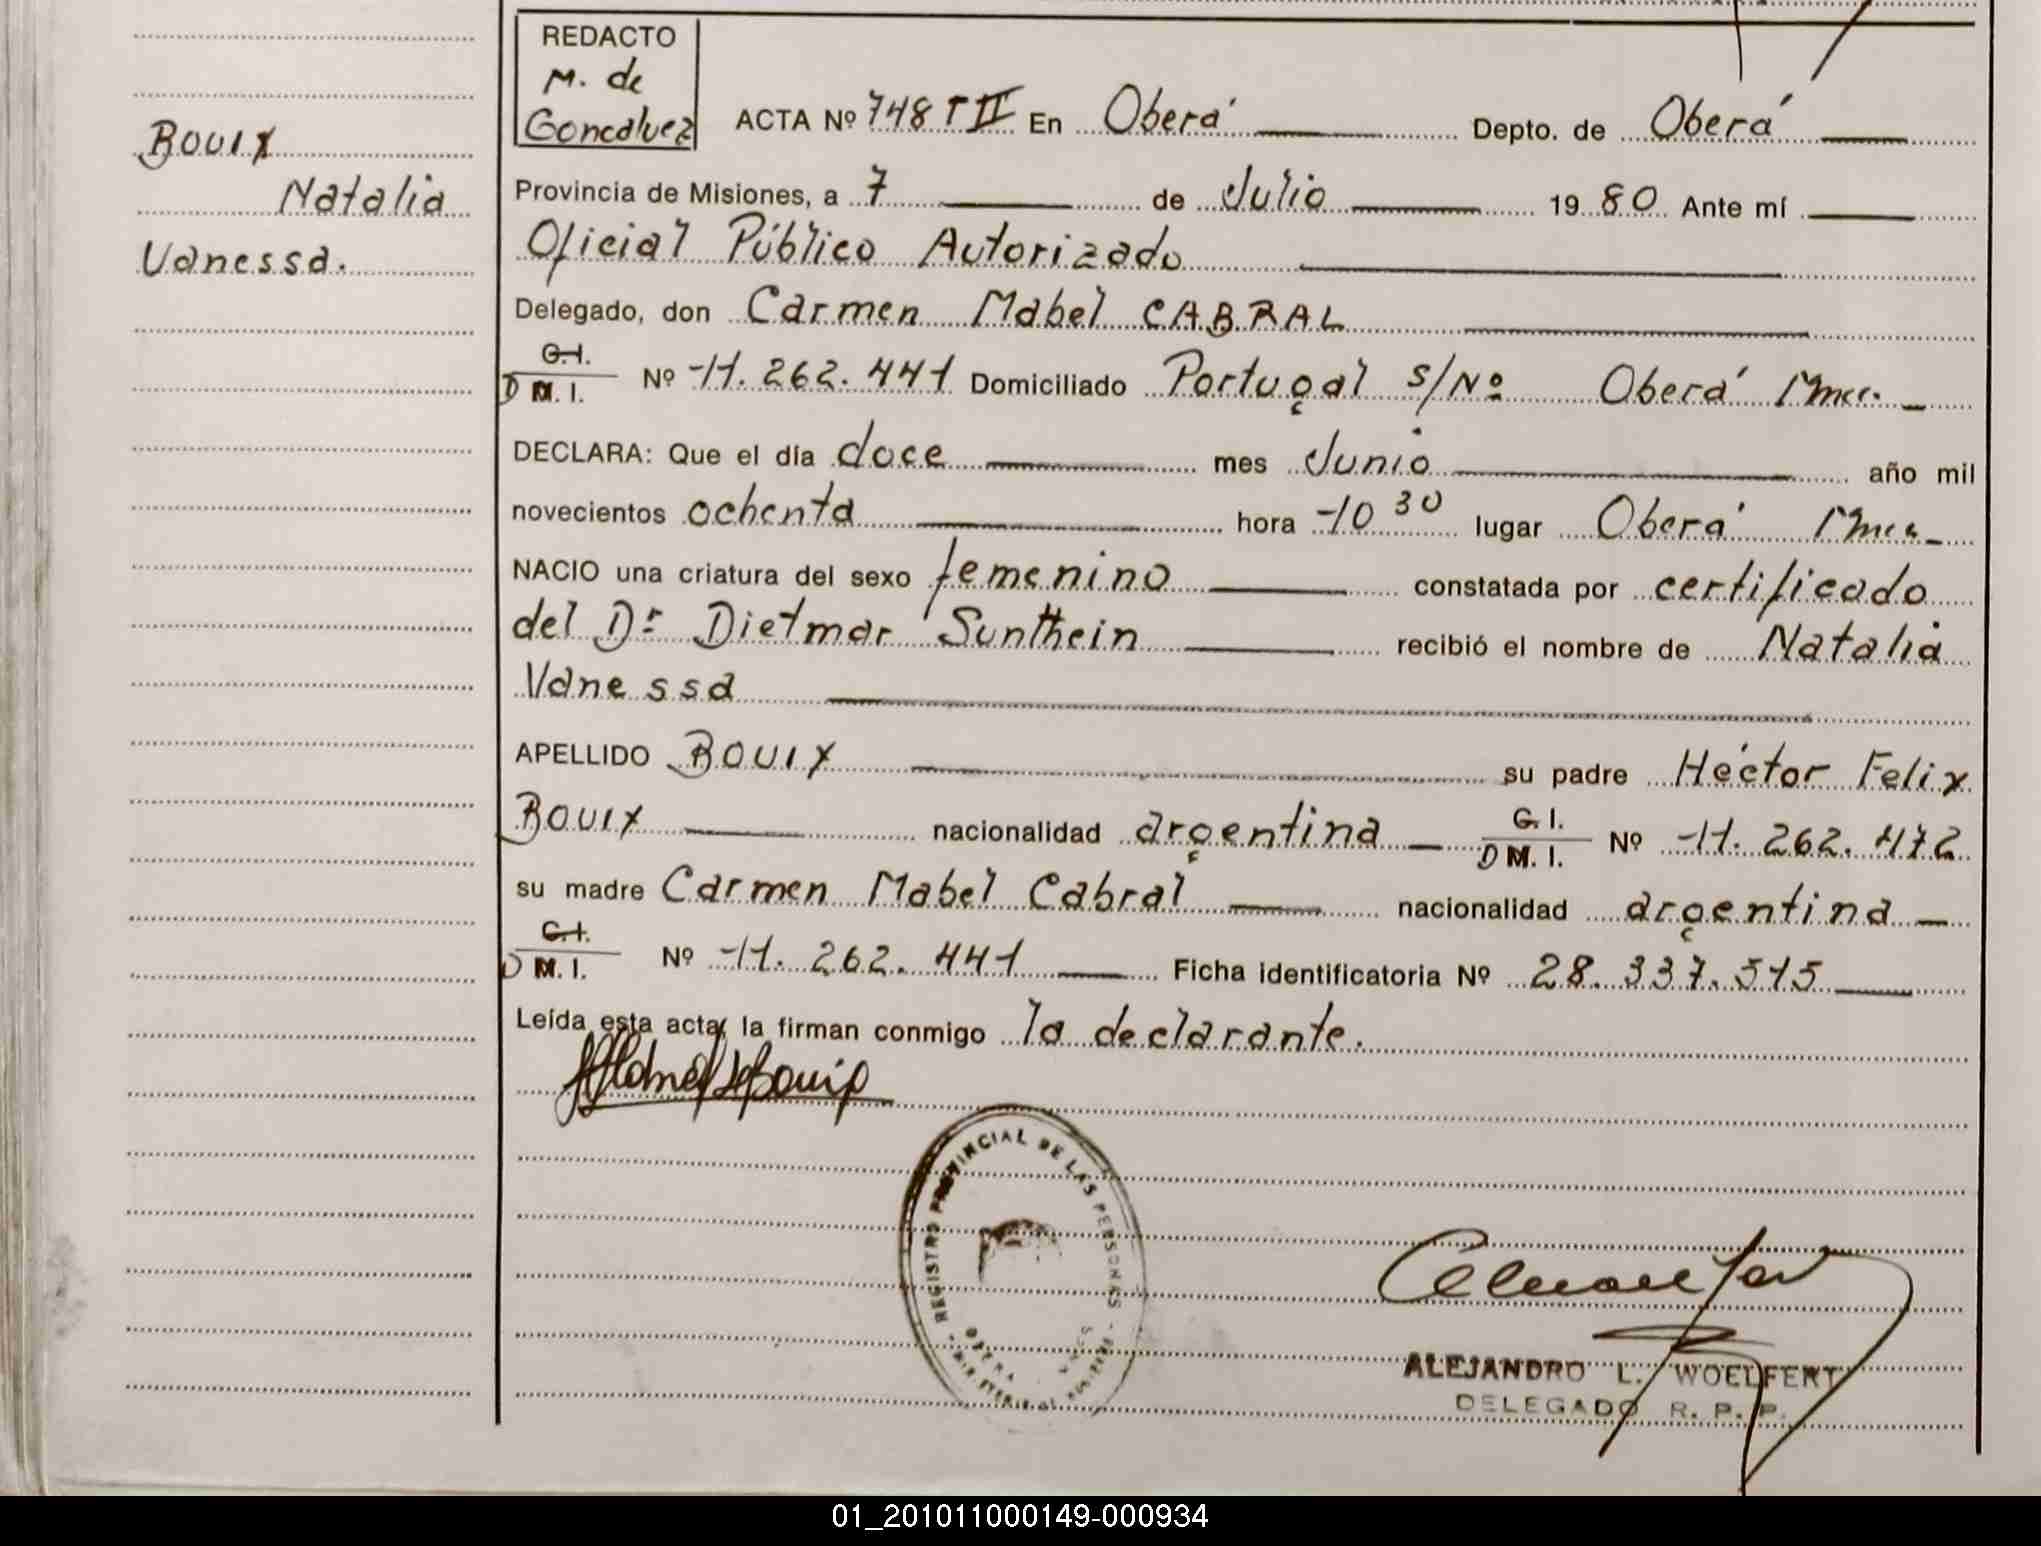 REDACTO
M. de
Goncalvez
BOUIX
Natalia
Vanessa.
ACTA Nº 748 T II En Oberá Depto. de Oberá
Provincia de Misiones, a 7 de Julio 1980 Ante mí
Oficial Público Autorizado
Delegado, don Carmen Mabel CABRAL
C.I.
D M. I. Nº 11.262.441 Domiciliado Portugal s/Nº Oberá Mnes.
DECLARA: Que el día doce mes Junio año mil
novecientos ochenta hora 10 30 lugar Oberá Mnes
NACIO una criatura del sexo femenino constatada por certificado
del Dr Dietmar Sunthein recibió el nombre de Natalia
Vanessa
APELLIDO BOUIX su padre Héctor Felix
BOUIX nacionalidad argentina C. I.
D M. I. Nº 11.262.472
su madre Carmen Mabel Cabral nacionalidad argentina
C.I.
D M. I. Nº 11.262.441 Ficha identificatoria Nº 28.337.515
Leída esta acta, la firman conmigo la declarante.
REGISTRO PROVINCIAL DE LAS PERSONAS
OBERA
ALEJANDRO L. WOELFERT
DELEGADO R. P. P.
01_201011000149-000934